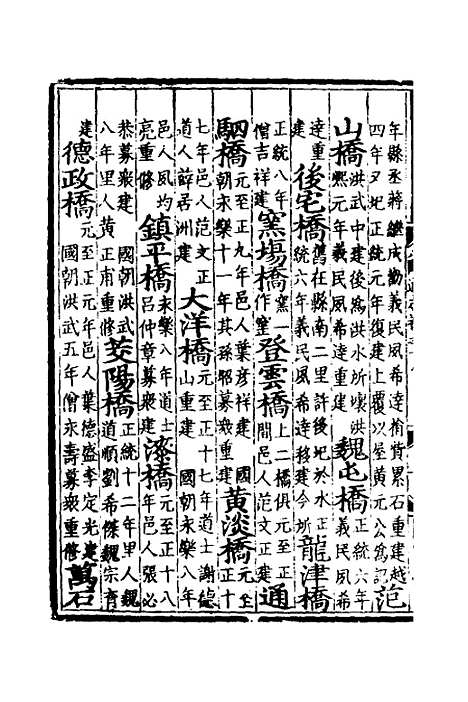 年縣丞蔣繼成勸義民風希達捐貲累石重建越
四年又圮正統元年復建上覆以屋黃元公為記
范
山橋
洪武中建後為洪水所壞洪
熙元年義民風希達重建
魏屯橋
正統六年
義民風希
達重
建
後宅橋
舊在縣南二里許後圮於水正
統六年義民風希達移建今所
龍津橋
正統八年
僧吉祥建
窯塲橋
窯一
作窰
登雲橋
上二橋俱元至正
間邑人范文正建
通
駟橋
元至正九年邑人葉彥祥建國
朝永樂十一年其孫昭募衆重建
黄淡橋
元至
正十
七年邑人范文正
道人薛居洲建
大洋橋
元至正十七年道士謝德
山重建 國朝永樂八年
邑人風均
亮重修
鎮平橋
永樂八年道士
呂仲章募衆建
漆橋
元至正十八
年邑人張必
恭募衆建 國朝洪武
八年里人黄正甫重修
茭陽橋
正統十二年里人魏
道順劉希傑魏宗育
建
德政橋
元至正元年邑人葉德盛李定光建
國朝洪武五年僧永壽募衆重修
萬石